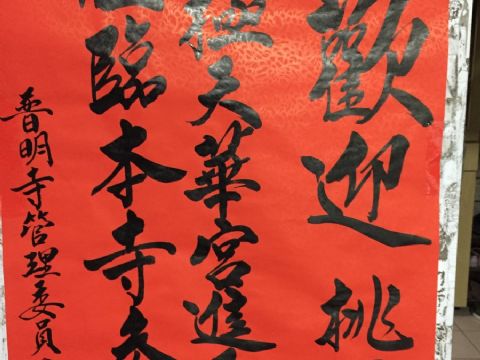 歡迎桃
極天華宮進
臨本寺參
普明寺管理委員